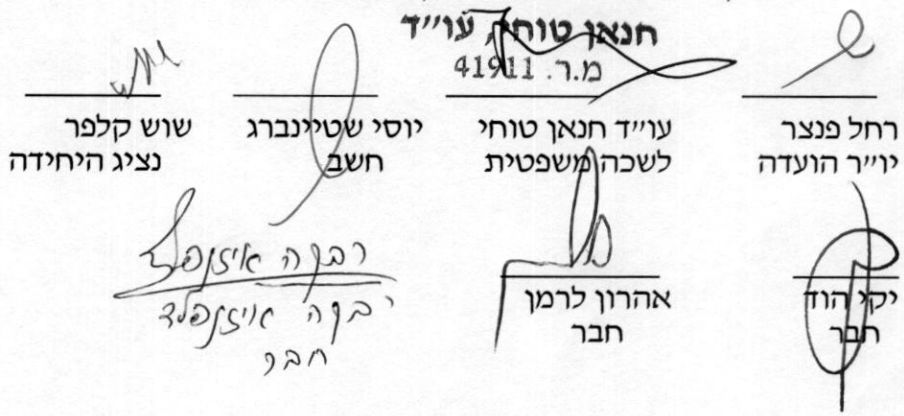 חנאן טוחי, עו"ד
מ.ר. 41911
רחל פנצר
יו"ר הועדה
עו"ד חנאן טוחי
לשכה משפטית
יוסי שטיינברג
חשב
שוש קלפר
נציג היחידה
יקי הוד
חבר
אהרון לרמן
חבר
רבקה איזנפלד
רבקה אויזנפלד
חבר